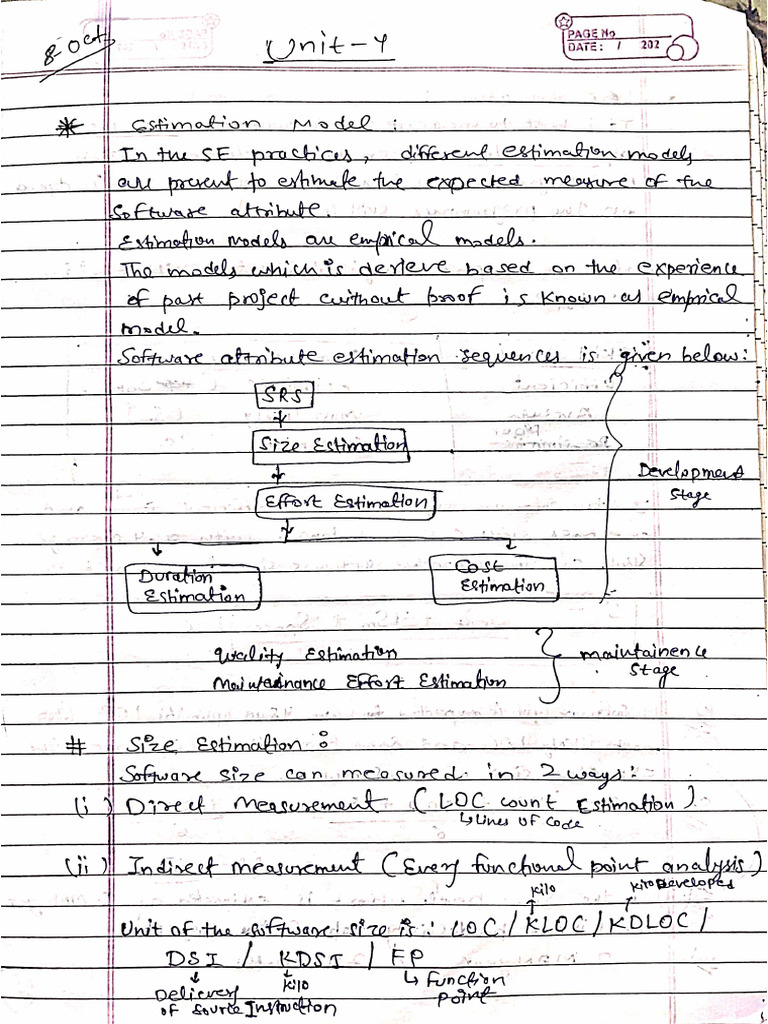 8 Oct
Unit-4
PAGE No
DATE: / 202
* Estimation Model :
In the SE practices, different estimation models
are present to estimate the expected measure of the
Software attribute.
Estimation models are emprical models.
The models which is derieve based on the experience
of past project without proof is known as emprical
model.
Software attribute estimation sequences is given below:
SRS
Size Estimation
Effort Estimation
Development
Stage
Duration
Estimation
Cost
Estimation
Quality Estimation
Maintainance Effort Estimation
maintainence
Stage
# Size Estimation :
Software size can measured in 2 ways:
(i) Direct Measurement (LOC count Estimation)
Lines of Code
(ii) Indirect measurement (Every functional point analysis)
Kilo
Kilo Developed
Unit of the software size is: LOC / KLOC / KDLOC /
DSI / KDSI / FP
Delievery
of Source Instruction
Kilo
Function
Point